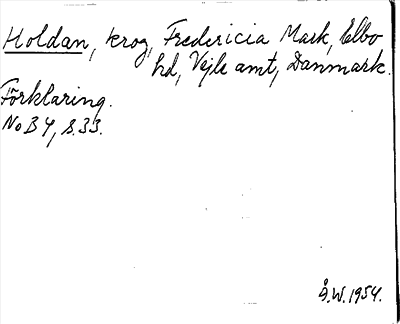 Holdan, krog, Fredericia Mark, Elbo
hd, Vejle amt, Danmark.
Förklaring.
NoB Y, s. 33.
Å.W. 1954.